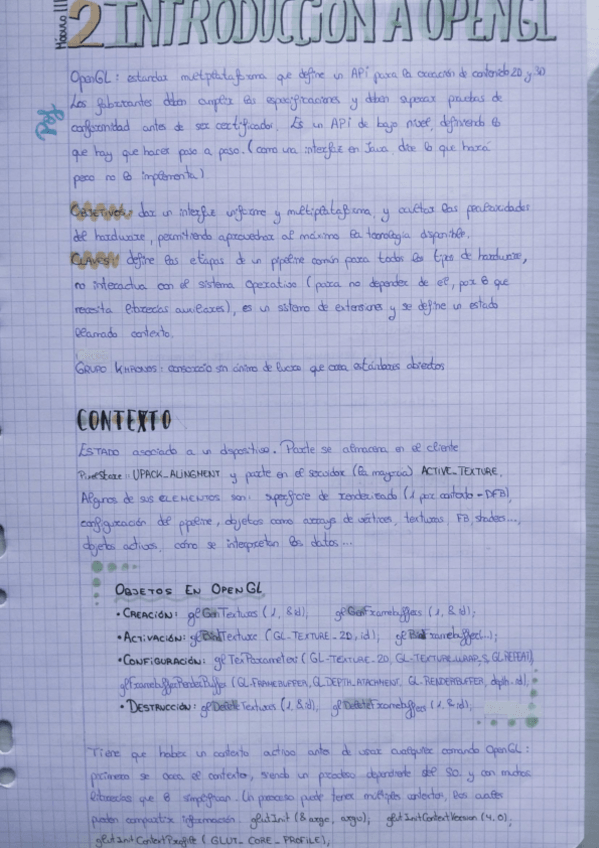 Módulo III
2 INTRODUCCIÓN A OPENGL
OpenGL: estandar multiplataforma que define un API para la creación de contenido 2D y 3D
Los fabricantes deben cumplir las especificaciones y deben superar pruebas de
conformidad antes de ser certificados. Es un API de bajo nivel, definiendo lo
que hay que hacer paso a paso. (como una interfaz en Java, dice lo que hará
pero no lo implementa)
OBJETIVOS: dar un interfaz uniforme y multiplataforma, y ocultar las peculiaridades
del hardware, permitiendo aprovechar al máximo la tecnología disponible.
CLAVES: define las etapas de un pipeline común para todos los tipos de hardware,
no interactua con el sistema operativo (para no depender de él, por lo que
necesita librerías auxiliares), es un sistema de extensiones y se define un estado
llamado contexto.
GRUPO KHRONOS: consorcio sin ánimo de lucro que crea estándares abiertos
CONTEXTO
ESTADO asociado a un dispositivo. Parte se almacena en el cliente
PixelStore:: UPACK_ALINGMENT y parte en el servidor (la mayoría) ACTIVE_TEXTURE,
Algunos de sus ELEMENTOS son: superficie de renderizado (1 por contexto - DFB),
configuración del pipeline, objetos como arrays de vértices, texturas FB, shaders...,
objetos activos, cómo se interpretan los datos...
OBJETOS EN OPENGL
• CREACIÓN: glGenTextures (1, &id), glGenFramebuffers (1, &id);
• ACTIVACIÓN: glBindTexture (GL-TEXTURE_2D, id), glBindFramebuffer(...);
• CONFIGURACIÓN: glTexParameteri (GL-TEXTURE_2D, GL-TEXTURE_WRAP_S, GL_REPEAT)
glFramebufferRenderbuffer (GL-FRAMEBUFFER, GL_DEPTH_ATACHMENT, GL-RENDERBUFFER, depth_id),
• DESTRUCCIÓN: glDeleteTextures (1, &id), glDeleteFramebuffers (1, &id),
Tiene que haber un contexto activo antes de usar cualquier comando OpenGL:
primero se crea el contexto, siendo un proceso dependiente del SO. y con muchas
librerías que lo simplifican. Un proceso puede tener múltiples contextos, los cuales
pueden compartir información. glutInit (&argc, argv); glutInitContextVersion (4,0),
glutInitContextProfile (GLUT_CORE_PROFILE),